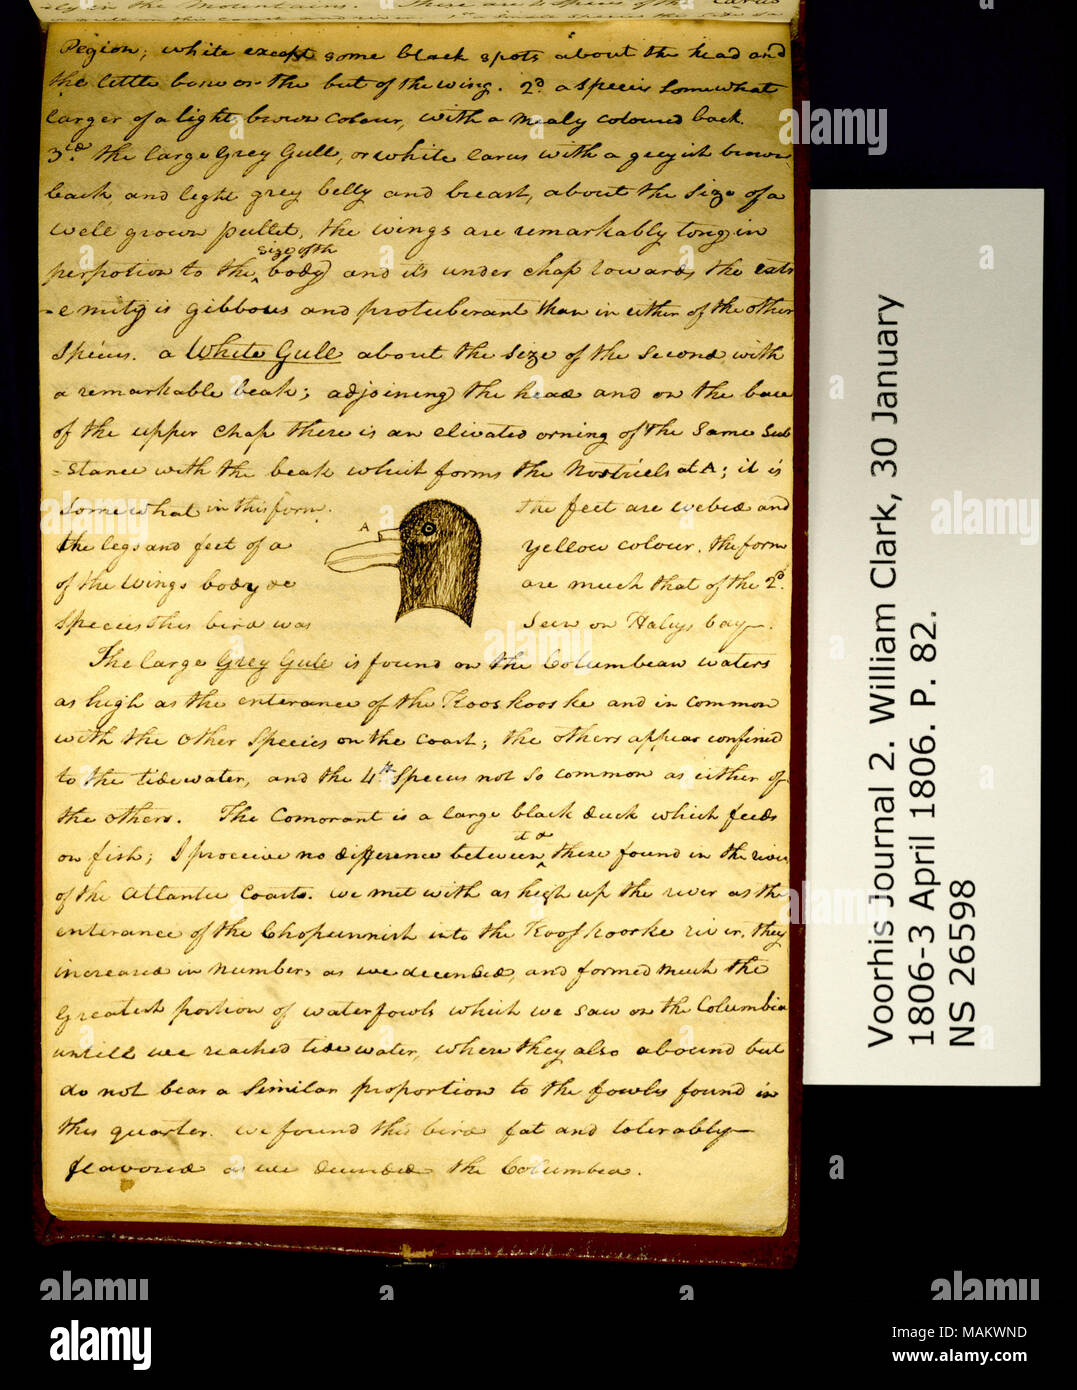 Pegion; white except some black spots about the head and
the little bone or the but of the wing. 2d. a Species Somewhat
larger of a light brown Colour, with a mealy coloured back.
3rd. the large Grey Gull, or white larus with a greyish brown
back, and light grey belly and breast, about the Size of a
well grown pullet, the wings are remarkably long in
perpotion to the size of the body and it's under chap towards the extr
-emity is gibbous and protuberant than in either of the other
Species. a White Gull about the Size of the Second with
a remarkable beak; adjoining the head and on the base
of the upper Chap there is an elivated orning of the Same Sub
=stance with the beak which forms the Nostriels at A; it is
Somewhat in this form. the feet are webed and
A
the legs and feet of a yellow colour. the form
of the Wings body &c are much that of the 2d.
Species this bird was Seen on Haleys bay—.
The large Grey Gull is found on the Columbean waters
as high as the enterance of the Kooskooske and in common
with the other Species on the coast; the others appear confined
to the tidewater, and the 4th Species not so common as either of
the others. The Comorant is a large black duck which feeds
on fish; I proceive no difference between it & these found in the rivers
of the Atlantic Coasts. we met with as high up the river as the
enterance of the Chopunnish into the Kooskooske river. they
increased in numbers as we decended, and formed much the
Greatest portion of waterfowls which we saw on the Columbia
untill we reached tidewater, where they also abound but
do not bear a Similar proportion to the fowls found in
this quarter. we found this bird fat and tolerably—
flavoured as we decended the Columbea.
Voorhis Journal 2. William Clark, 30 January
1806-3 April 1806. P. 82.
NS 26598
alamy
Image ID: MAKWND
www.alamy.com